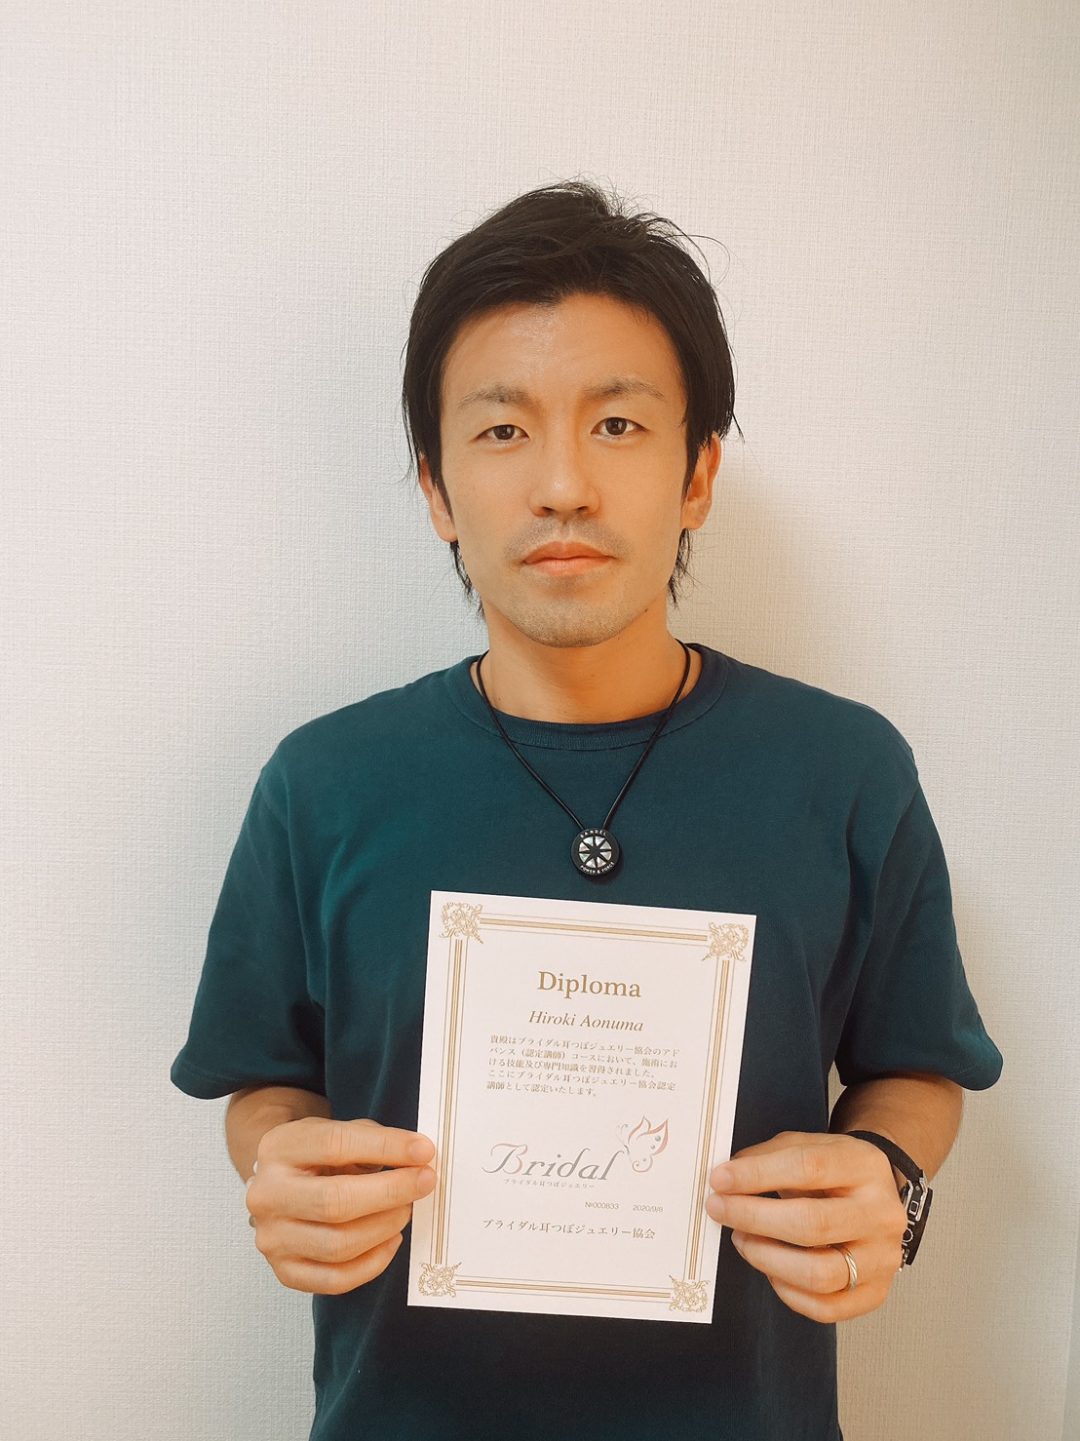 BANDEL
POWER & FORCE
Diploma
Hiroki Aonuma
貴殿はブライダル耳つぼジュエリー協会のアド
バンス（認定講師）コースにおいて、施術にお
ける技能及び専門知識を習得されました。
ここにブライダル耳つぼジュエリー協会認定
講師として認定いたします。
Bridal
ブライダル耳つぼジュエリー
№000833 2020/9/8
ブライダル耳つぼジュエリー協会